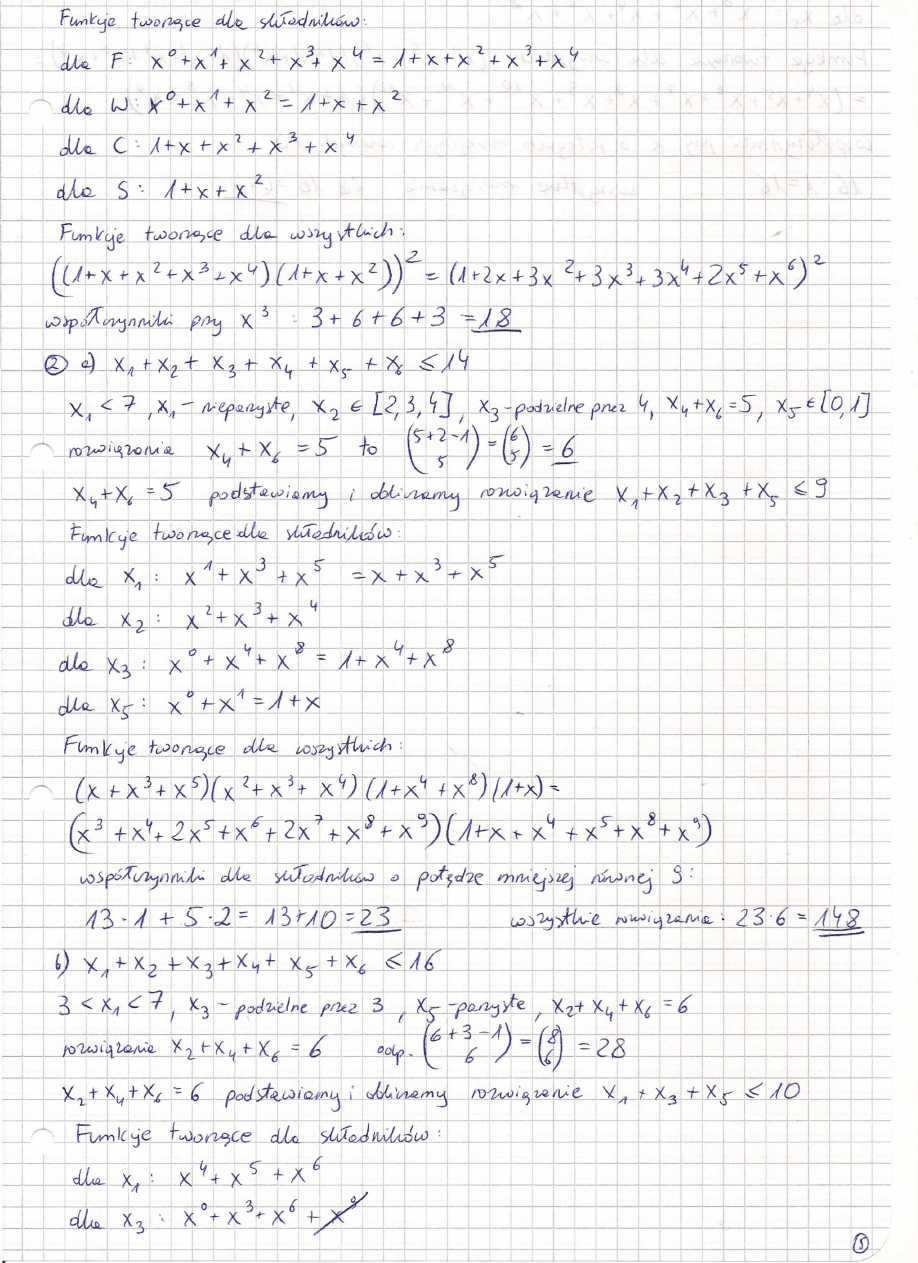 Funkcje tworzące dla składników:
dla F: x⁰+x¹+x²+x³+x⁴ = 1+x+x²+x³+x⁴
dla W: x⁰+x¹+x² = 1+x+x²
dla C: 1+x+x²+x³+x⁴
dla S: 1+x+x²
Funkcje tworzące dla wszystkich:
((1+x+x²+x³+x⁴)(1+x+x²))² = (1+2x+3x²+3x³+3x⁴+2x⁵+x⁶)²
współczynniki przy x³ : 3+6+6+3 = 18
② a) x₁+x₂+x₃+x₄+x₅+x₆ ≤ 14
x₁<7, x₁ - nieparzyste, x₂ ∈ [2,3,4], x₃ - podzielne przez 4, x₄+x₆=5, x₅∈[0,1]
rozwiązania x₄+x₆ = 5 to (5+2-1 5) = (6 5) = 6
x₄+x₆ = 5 podstawiamy i obliczamy rozwiązanie x₁+x₂+x₃+x₅ ≤ 9
Funkcje tworzące dla składników:
dla x₁: x¹+x³+x⁵ = x+x³+x⁵
dla x₂: x²+x³+x⁴
dla x₃: x⁰+x⁴+x⁸ = 1+x⁴+x⁸
dla x₅: x⁰+x¹ = 1+x
Funkcje tworzące dla wszystkich:
(x+x³+x⁵)(x²+x³+x⁴)(1+x⁴+x⁸)(1+x) =
(x³+x⁴+2x⁵+x⁶+2x⁷+x⁸+x⁹)(1+x+x⁴+x⁵+x⁸+x⁹)
współczynniki dla składników o potędze mniejszej równej 9:
13·1 + 5·2 = 13+10 = 23 wszystkie rozwiązania: 23·6 = 148
b) x₁+x₂+x₃+x₄+x₅+x₆ ≤ 16
3<x₁<7, x₃ - podzielne przez 3, x₅ - parzyste, x₂+x₄+x₆ = 6
rozwiązania x₂+x₄+x₆ = 6 odp. (6+3-1 6) = (8 6) = 28
x₂+x₄+x₆ = 6 podstawiamy i obliczamy rozwiązanie x₁+x₃+x₅ ≤ 10
Funkcje tworzące dla składników:
dla x₁: x⁴+x⁵+x⁶
dla x₃: x⁰+x³+x⁶+x⁹
⑤